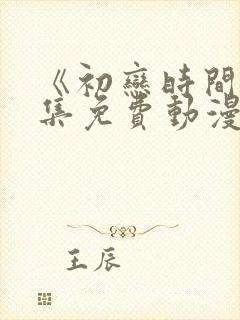 《初戀時間
集免費動漫
王辰